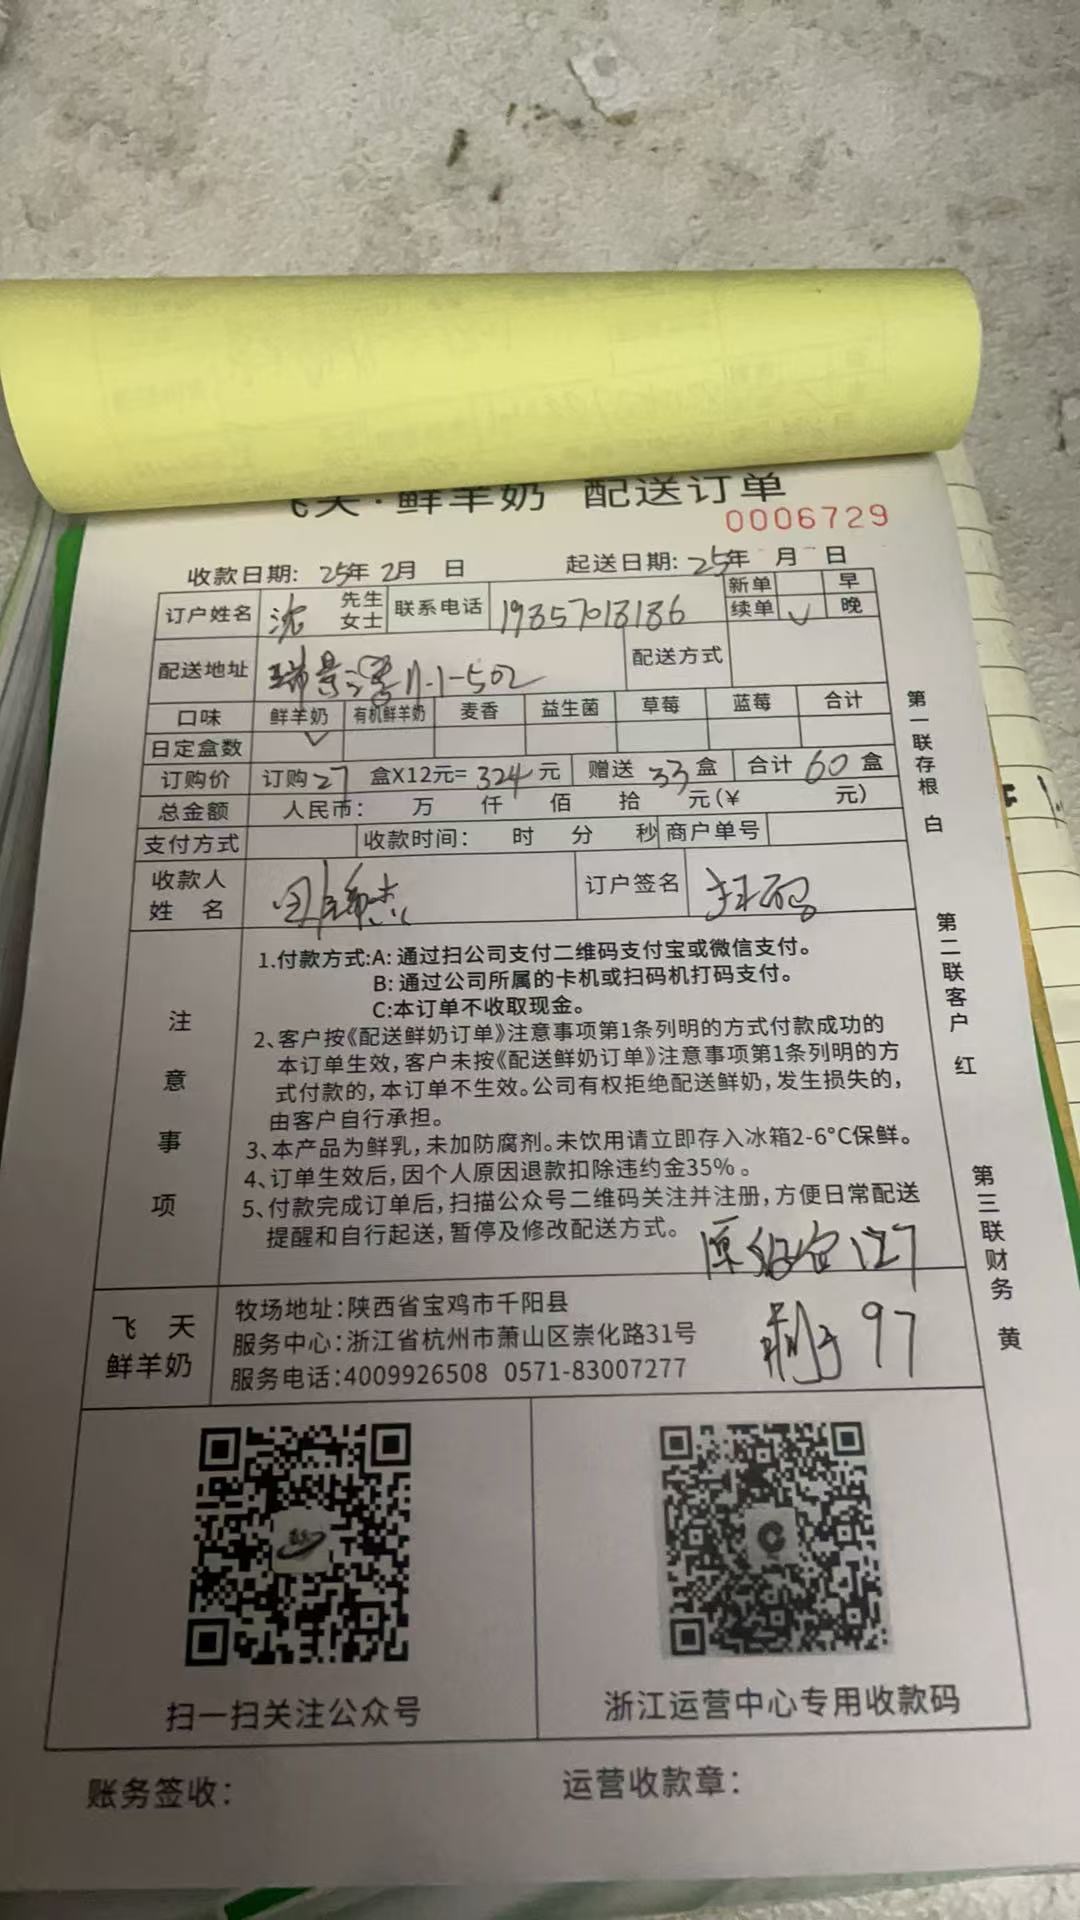 飞天·鲜羊奶 配送订单
0006729
收款日期: 25年 2月 日 起送日期: 25年 月 日
订户姓名 沈 先生 女士 联系电话 19857018186 新单 早
续单 ✓ 晚
配送地址 瑞景湾11-1-502 配送方式
口味 鲜羊奶 有机鲜羊奶 麦香 益生菌 草莓 蓝莓 合计
日定盒数 ✓
订购价 订购27 盒X12元= 324元 赠送 33盒 合计 60盒
总金额 人民币: 万 仟 佰 拾 元(¥ 元)
支付方式 收款时间: 时 分 秒 商户单号
收款人姓名 订户签名 扫码
注意事项
1.付款方式:A: 通过扫公司支付二维码支付宝或微信支付。
B: 通过公司所属的卡机或扫码机打码支付。
C:本订单不收取现金。
2、客户按《配送鲜奶订单》注意事项第1条列明的方式付款成功的
本订单生效,客户未按《配送鲜奶订单》注意事项第1条列明的方
式付款的,本订单不生效。公司有权拒绝配送鲜奶,发生损失的,
由客户自行承担。
3、本产品为鲜乳,未加防腐剂。未饮用请立即存入冰箱2-6°C保鲜。
4、订单生效后,因个人原因退款扣除违约金35%。
5、付款完成订单后,扫描公众号二维码关注并注册,方便日常配送
提醒和自行起送,暂停及修改配送方式。
原 127
剩 97
飞天
鲜羊奶
牧场地址:陕西省宝鸡市千阳县
服务中心:浙江省杭州市萧山区崇化路31号
服务电话:4009926508 0571-83007277
扫一扫关注公众号 浙江运营中心专用收款码
账务签收: 运营收款章:
第一联存根 白
第二联客户 红
第三联财务 黄